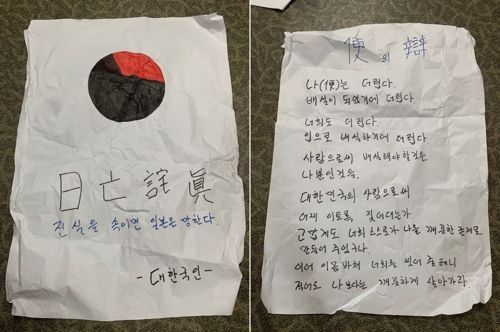 日亡詑眞
진실을 속이면 일본은 망한다.
-대한국인-
便의 辯
나(便)는 더럽다.
배설이 되었기에 더럽다.
너희도 더럽다.
입으로 배설하기에 더럽다
사람으로써 배설해야할것은
나뿐인것을.
대한민국의 사람으로써
어찌 이토록 짖어대는가
고맙게도 너희 스스로가 나를 깨끗한 존재로
만들어 주었구나.
이에 이몸바쳐 너희를 씻어 줄테니
적어도 나 보다는 깨끗하게 살아가라.